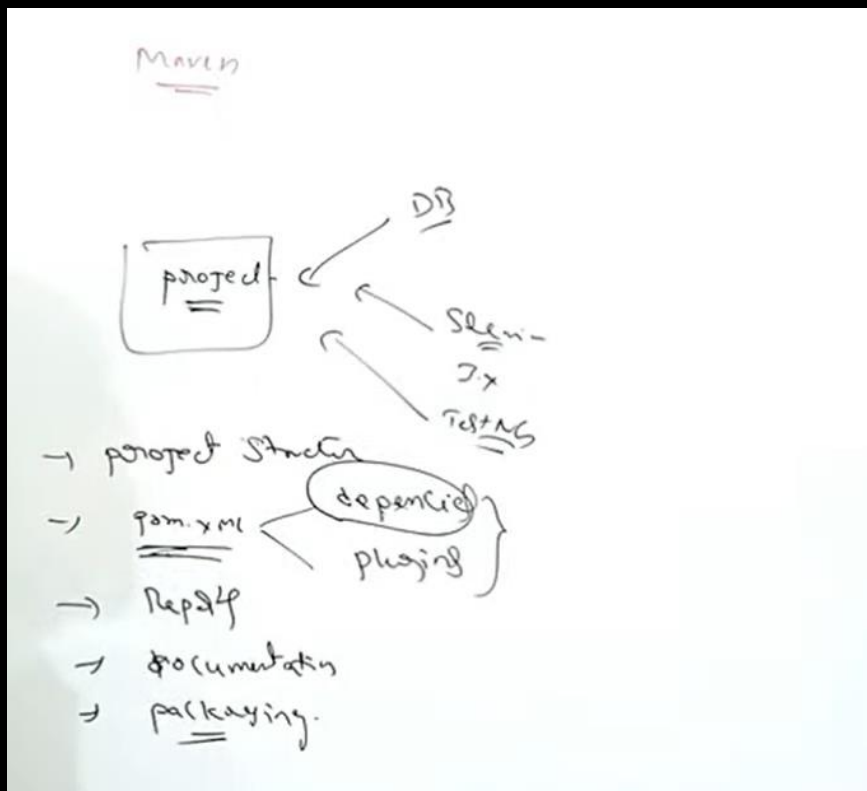 Maven
DB
project
Selenium
3.x
TestNG
→ project Structur
→ pom.xml
dependencies
plugins
→ Reports
→ documentation
→ packaging.